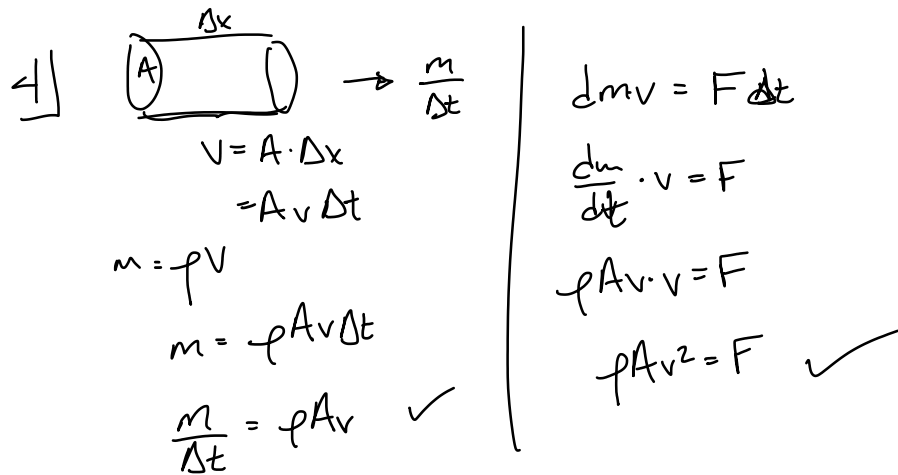 4]
Δx
A → m/Δt
V = A·Δx
= Av Δt
m = ρV
m = ρAvΔt
m/Δt = ρAv ✓
dmv = F dt
dm/dt · v = F
ρAv·v = F
ρAv² = F ✓